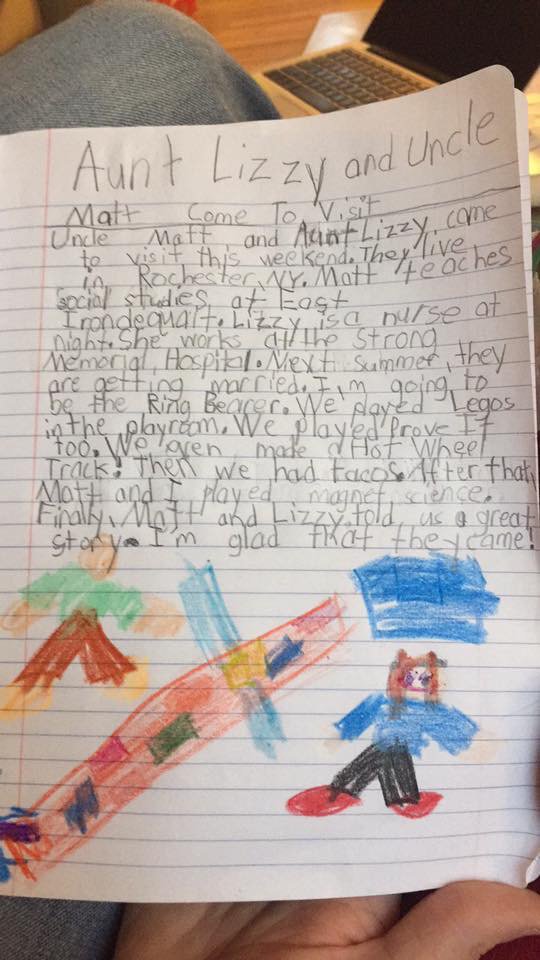 Aunt Lizzy and Uncle
Matt Come To Visit
Uncle Matt and Aunt Lizzy came
to visit this weekend. They live
in Rochester, NY. Matt teaches
social studies at East
Irondequait. Lizzy is a nurse at
night. She works at the Strong
Memorial Hospital. Next summer, they
are getting married. I'm going to
be the Ring Bearer. We played Legos
in the playroom. We played Prove It
too. We even made a Hot Wheel
Track! Then we had tacos. After that,
Matt and I played magnet science.
Finally, Matt and Lizzy told us a great
story. I'm glad that they came!